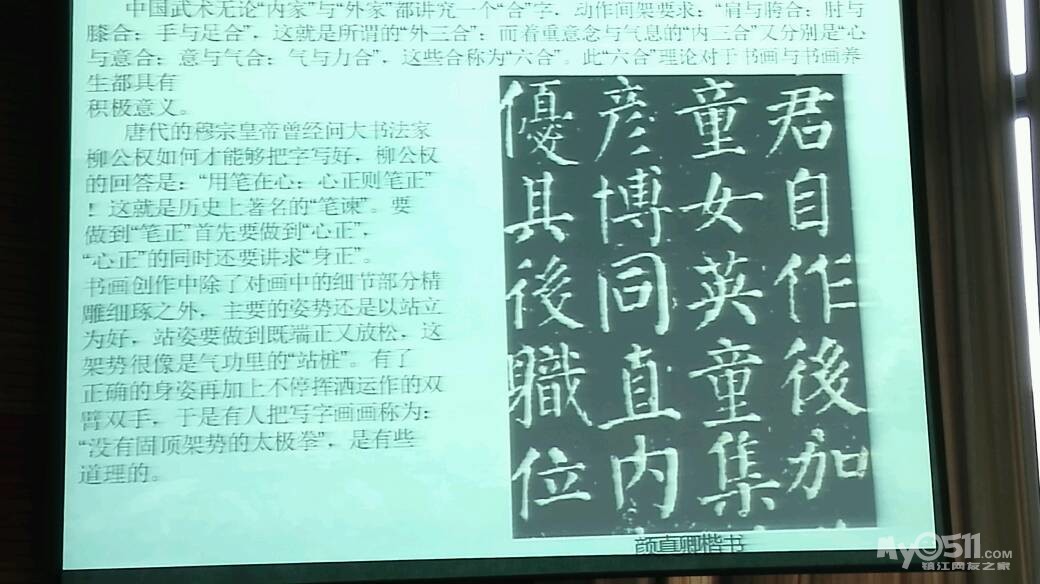 中国武术无论“内家”与“外家”都讲究一个“合”字，动作间架要求：“肩与胯合；肘与
膝合；手与足合”，这就是所谓的“外三合”；而着重意念与气息的“内三合”又分别是“心
与意合；意与气合；气与力合”，这些合称为“六合”。此“六合”理论对于书画与书画养
生都具有
积极意义。
唐代的穆宗皇帝曾经问大书法家
柳公权如何才能够把字写好，柳公权
的回答是：“用笔在心；心正则笔正”
！这就是历史上著名的“笔谏”。要
做到“笔正”首先要做到“心正”，
“心正”的同时还要讲求“身正”。
书画创作中除了对画中的细节部分精
雕细琢之外，主要的姿势还是以站立
为好，站姿要做到既端正又放松，这
架势很像是气功里的“站桩”。有了
正确的身姿再加上不停挥洒运作的双
臂双手，于是有人把写字画画称为：
“没有固顶架势的太极拳”，是有些
道理的。
君自作後加
童女英童集
彦博同直内
優其後職位
颜真卿楷书
My0511.COM
镇江网友之家